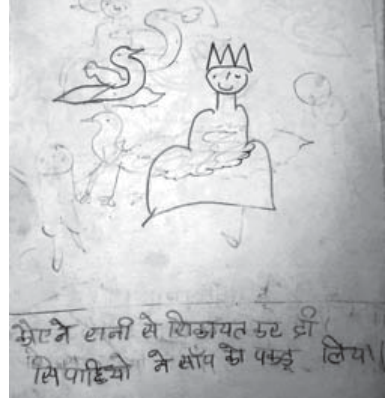 कौए ने रानी से शिकायत कर दी
सिपाहियो ने साँप को पकड़ लिया।